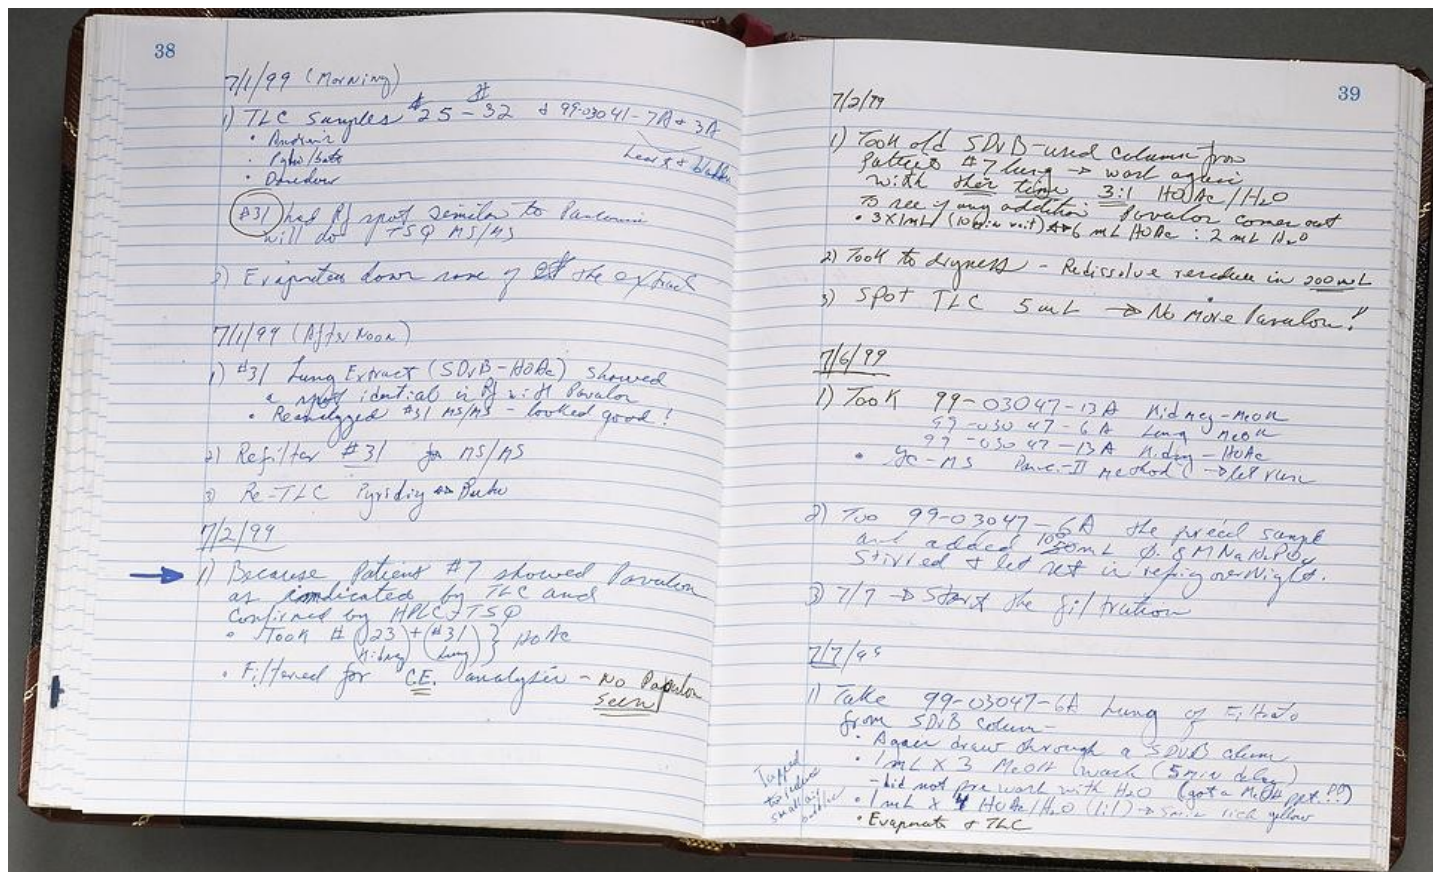 38
7/1/99 (Morning)
1) TLC samples #25 - #32 & 99-03041-7A & 3A
heart & bladder
#31 had Rf spot similar to
will do TSQ MS/MS
2) Evaporated down some of the extract
7/1/99 (AfterNoon)
1) #31 Lung Extract (SDVB-HOAc) showed
a spot identical in Rf with Pavulon
• Reanalyzed #31 MS/MS - looked good!
2) Refilter #31 for MS/MS
3) Re-TLC
7/2/99
1) Because Patient #7 showed Pavulon
as indicated by TLC and
confirmed by HPLC + TSQ
• Took # (23) + (#31) } HOAc
Kidney Lung
• Filtered for C.E. analysis - No Pavulon
seen
39
7/2/99
1) Took old SDVB-used column from
patient #7 lung → wash again
with this time 3:1 HOAc/H2O
To see if any addition Pavulon comes out
• 3X1mL (10 min wait) 6 mL HOAc : 2 mL H2O
2) Took to dryness - Redissolve residue in 200 mL
3) Spot TLC 5 mL → No More Pavulon!!
7/6/99
1) Took 99-03047-13A Kidney-MeOH
99-03047-6A Lung MeOH
99-03047-13A Kidney-HOAc
• GC-MS method → let run
2) Too 99-03047-6A the sample
and added 100 mL 0.8M
Stirred & let set in refrig overNight.
3) 7/7 → Start the filtration
7/7/99
1) Take 99-03047-6A Lung of Filtrate
from SDVB column -
• Again draw through a SDVB column
• 1mL X 3 MeOH wash (5 min delay)
- did not pre wash with H2O (got a MeOH ppt.!!)
• 1mL X 4 HOAc/H2O (1:1) → 5min rich yellow
• Evaporate & TLC
Tapped
to
small air